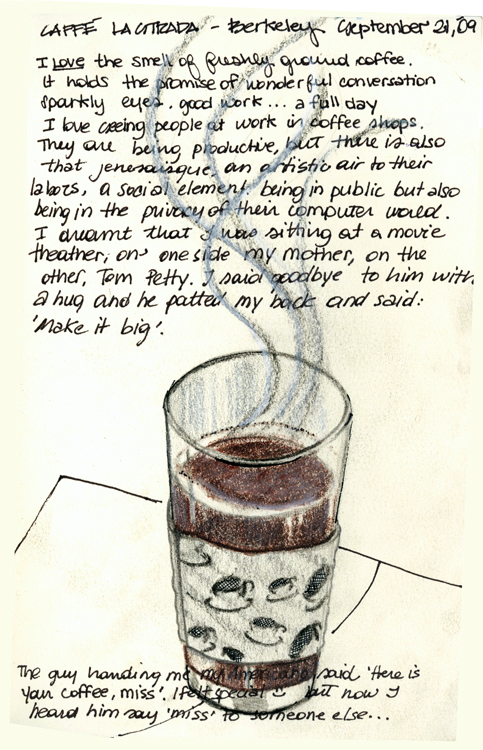 CAFFÉ LA STRADA - Berkeley September 21, '09
I LOVE the smell of freshly ground coffee.
It holds the promise of wonderful conversation
sparkly eyes, good work... a full day
I love seeing people at work in coffee shops.
They are being productive, but there is also
that jenesaisque, an artistic air to their
labors, a social element, being in public but also
being in the privacy of their computer world.
I dreamt that I was sitting at a movie
theather, on one side my mother, on the
other, Tom Petty. I said goodbye to him with
a hug and he patted my back and said:
'Make it big'.
The guy handing me my Americano said 'Here is
your coffee, miss'. I felt special ☺ but now I
heard him say 'miss' to someone else...